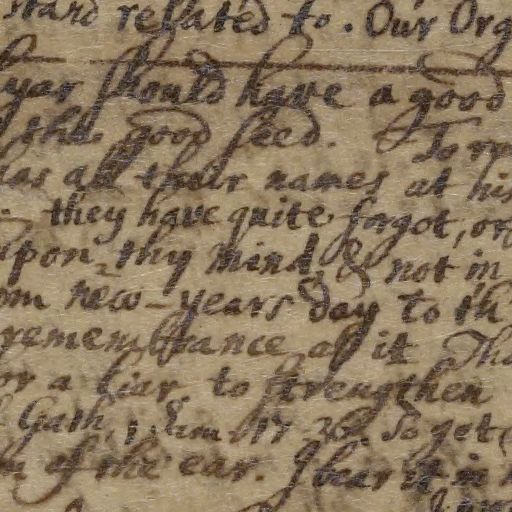 stand related to. Our Org
lyar should have a good
the good seed. To re
las all their names at his
they have quite forgot, or
upon thy mind, & not in
om new-years day to th
remembrance of it Tha
or a liar to strengthen
Gath, 1 Sam 17 So get
of the ear. I bear it in